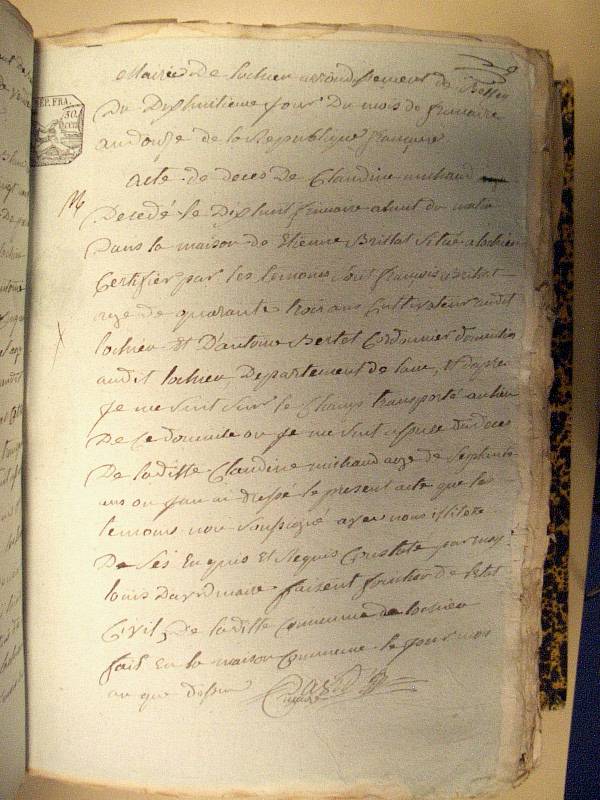 Mairie de lochieu arrondissement de Belley
Du Dixhuitieme jour Du mois de frimaire
an douze de la Republique française
REP. FRA.
acte de deces De Claudine michaud
M
Decedé le Dixhuit frimaire a huit du matin
Dans la maison de Etienne Brillat Situé a lochieu
Certifier par les temoins sont françois Brillat
age de quarante trois ans Cultivateur audit
lochieu et D'antoine Bertet Cordonnier
audit lochieu, Departement de lain, Et
Je me suis sur le Champ transporté au lieu
De Ce domicile ou Je me suis du deces
De laditte Claudine michaud age de Septante
ans ou J'en ai dressé le present acte que les
temoins non Soussigné avec nous
De Ses Enquis Et Requis Constate par moy
louis maire faisent fonction de letat
Civil, De laditte Commune de lochieu
fait En la maison Commune le Jour mois
an que dessu
maire